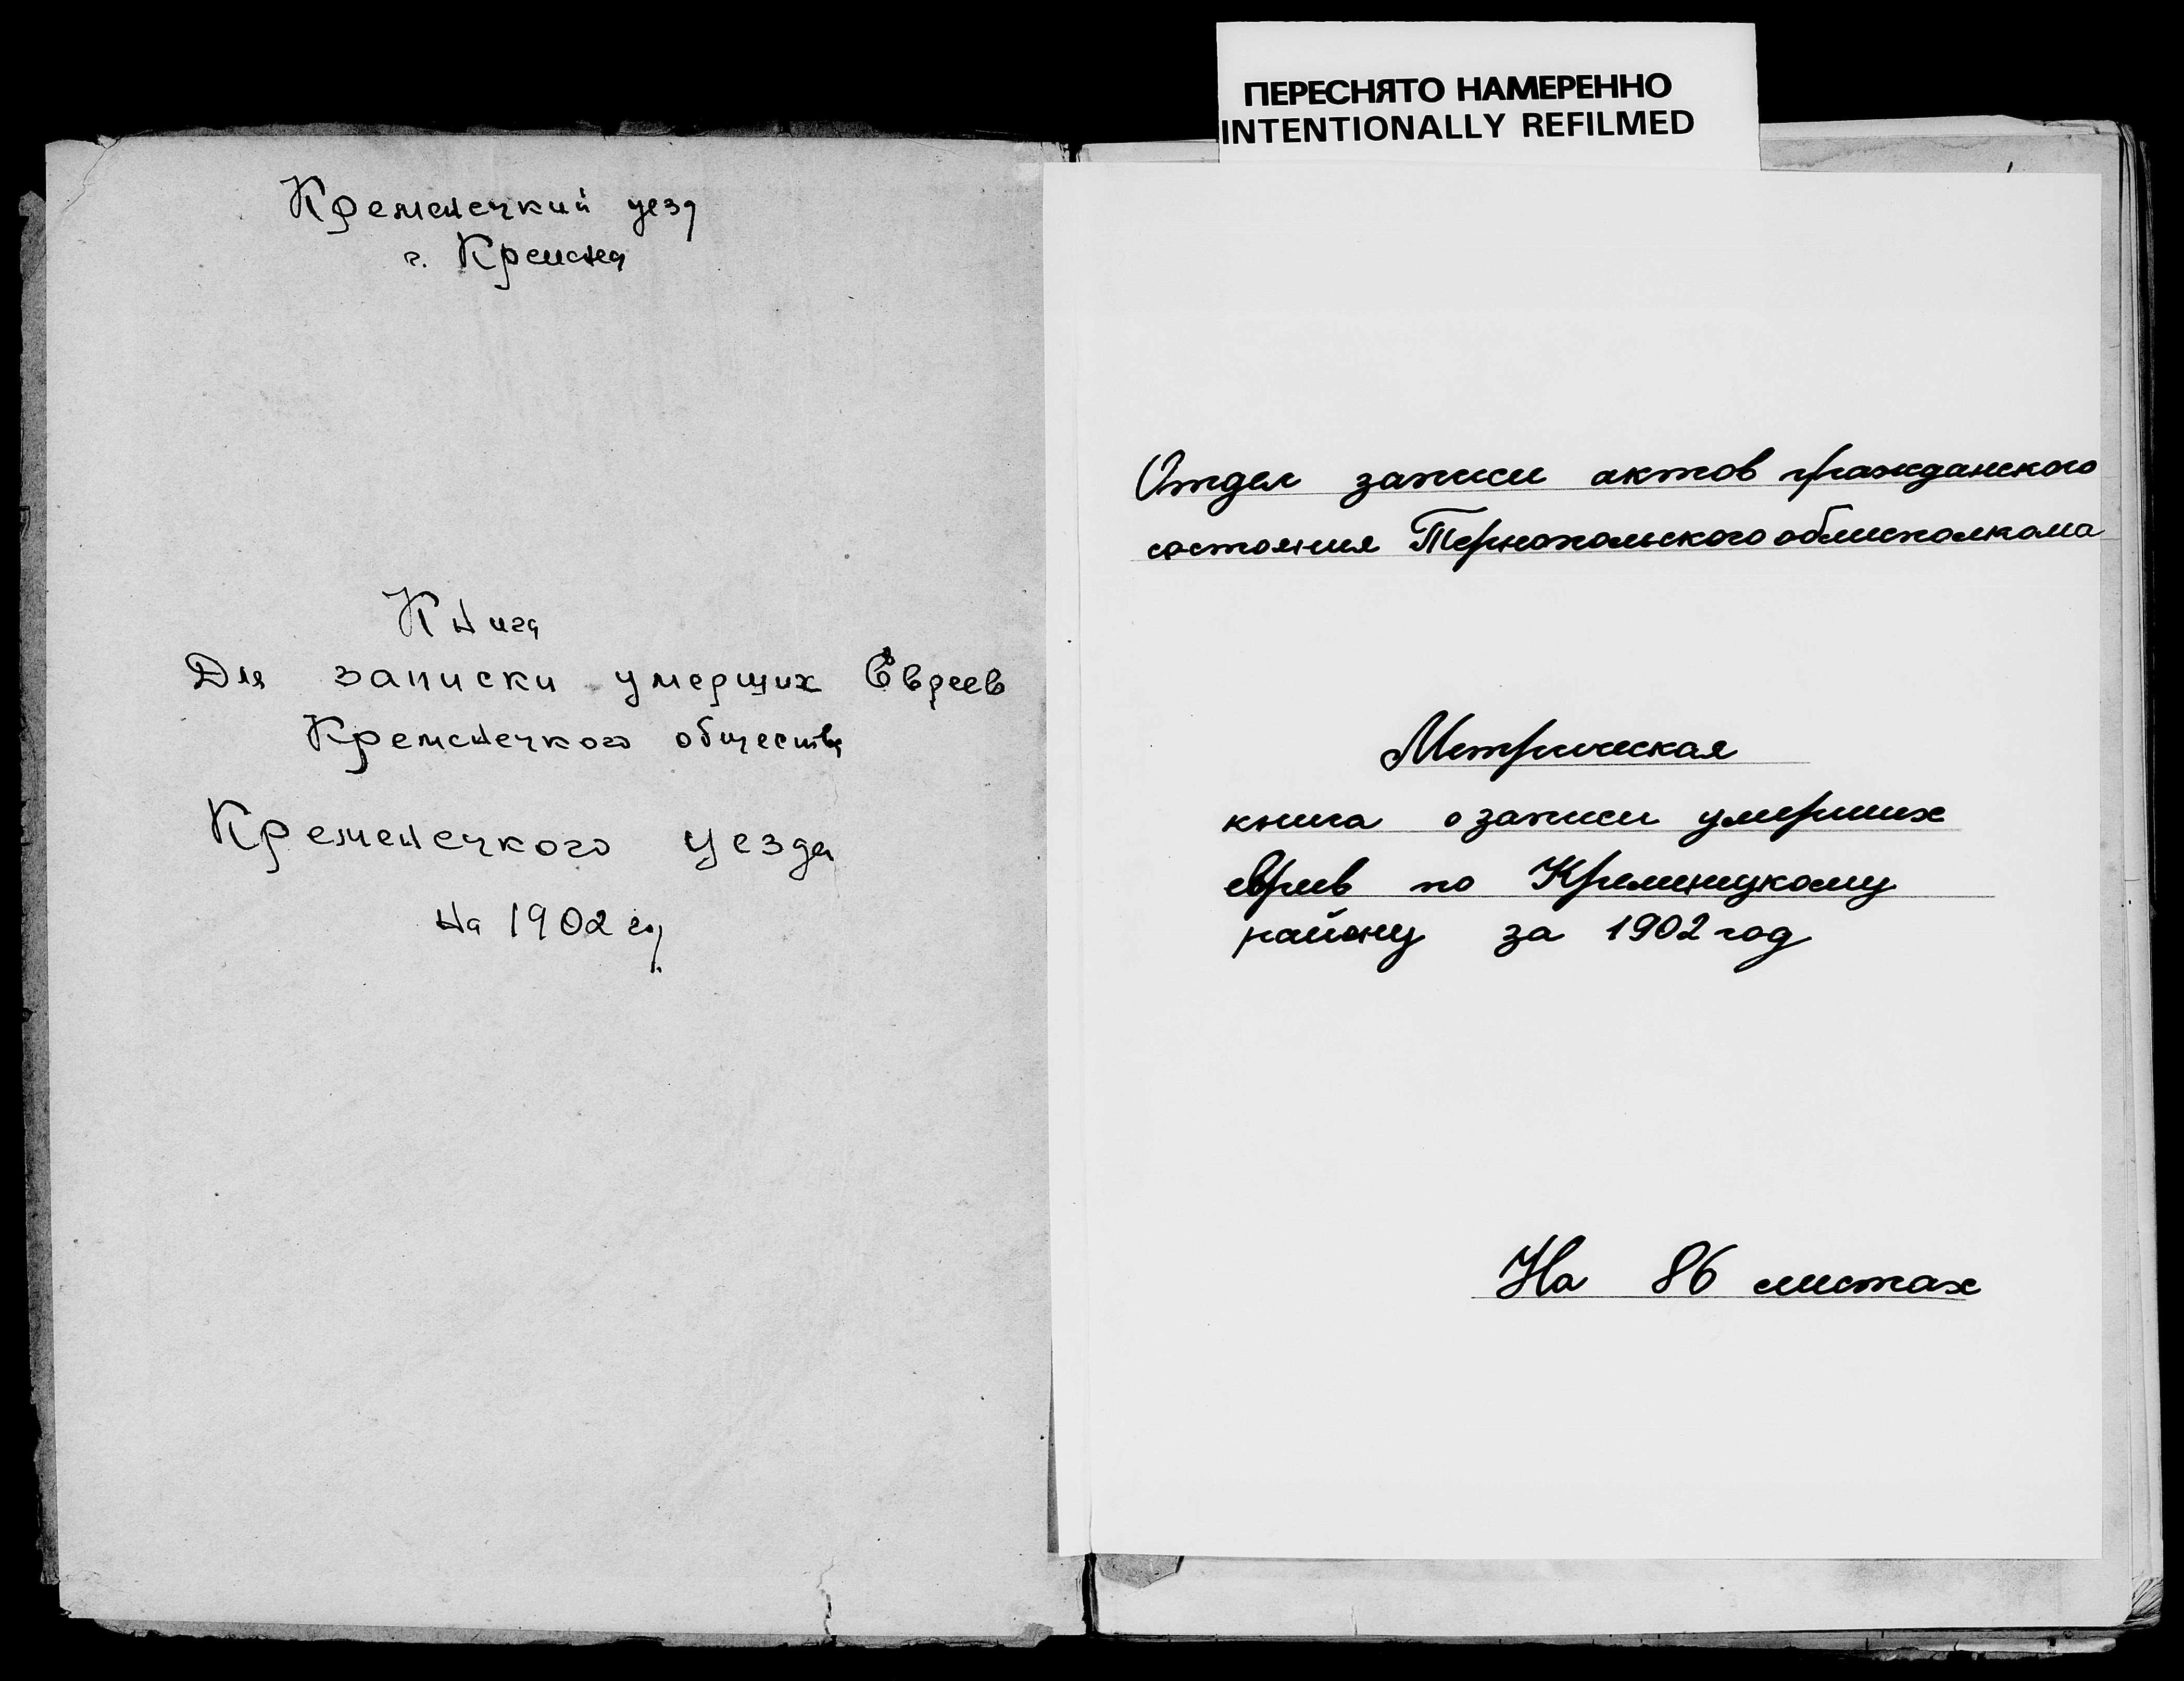 ПЕРЕСНЯТО НАМЕРЕННО
INTENTIONALLY REFILMED
Кременецкий уезд
г. Кременец
Книга
Для записки умерших Евреев
Кременецкого общества
Кременецкого уезда
на 1902 год
Отдел записи актов гражданского
состояния Тернопольского облисполкома
Метрическая
книга о записи умерших
евреев по Кременецкому
району за 1902 год
На 86 листах